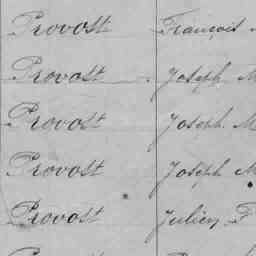 Provost François
Provost Joseph M
Provost Joseph M
Provost Joseph M
Provost Julien F